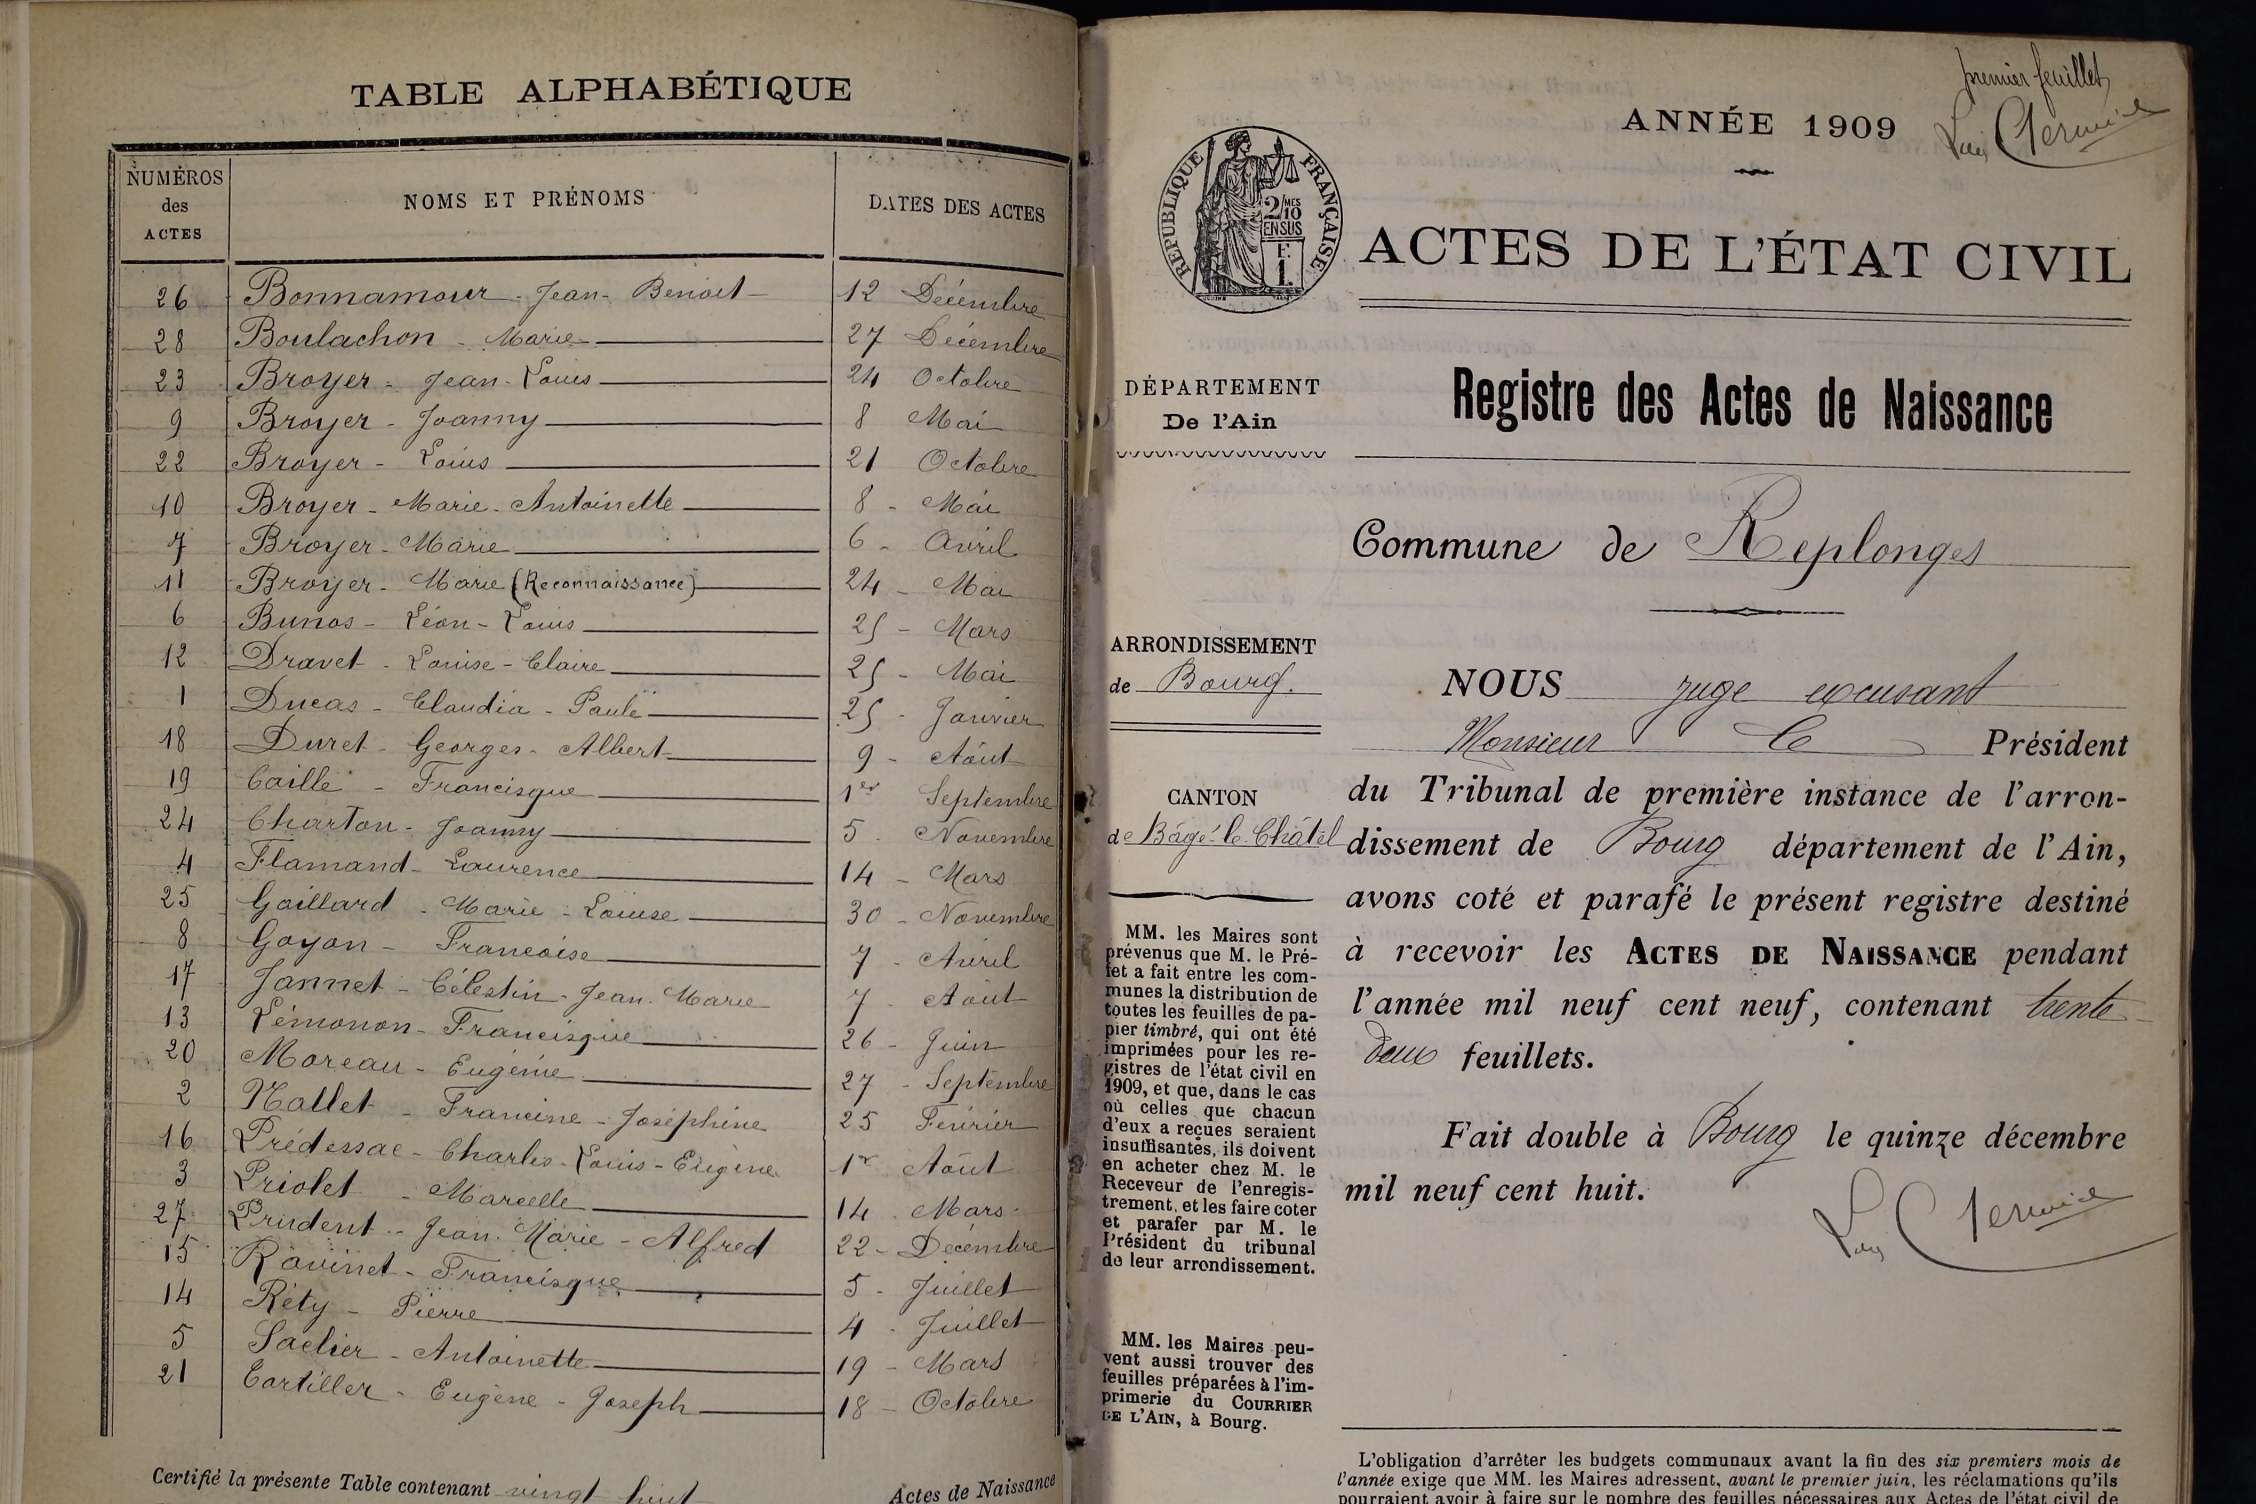 TABLE ALPHABÉTIQUE
NUMÉROS des ACTES NOMS ET PRÉNOMS DATES DES ACTES
26 Bonnamour - Jean - Benoit 12 Décembre
28 Boulachon - Marie 27 Décembre
23 Broyer - Jean - Louis 24 Octobre
9 Broyer - Joanny 8 Mai
22 Broyer - Louis 21 Octobre
10 Broyer - Marie - Antoinette 8 - Mai
7 Broyer - Marie 6 - Avril
11 Broyer - Marie (Reconnaissance) 24 - Mai
6 Bunos - Léon - Louis 25 - Mars
12 Dravet - Louise - Claire 25 - Mai
1 Ducas - Claudia - Paule 25 - Janvier
18 Duret - Georges - Albert 9 - Août
19 Caille - Francisque 1er Septembre
24 Charton - Joanny 5 - Novembre
4 Flamand - Laurence 14 - Mars
25 Gaillard - Marie - Louise 30 - Novembre
8 Goyon - Francoise 7 - Avril
17 Jannet - Célestin - Jean - Marie 7 - Août
13 Lémonon - Francisque 26 - Juin
20 Moreau - Eugénie 27 - Septembre
2 Nallet - Francine - Joséphine 25 Février
16 Prédessac - Charles - Louis - Eugène 1er Août
3 Priolet - Marcelle 14 - Mars
27 Prudent - Jean - Marie - Alfred 22 - Décembre
15 Ravinet - Francisque 5 - Juillet
14 Réty - Pierre 4 - Juillet
5 Saclier - Antoinette 19 - Mars
21 Tortiller - Eugène - Joseph 18 - Octobre
Certifié la présente Table contenant vingt huit Actes de Naissance
premier feuillet
ANNÉE 1909
RÉPUBLIQUE FRANÇAISE
2/10 MES
EN SUS
F.
1.
ACTES DE L'ÉTAT CIVIL
DÉPARTEMENT
De l'Ain
Registre des Actes de Naissance
Commune de Replonges
ARRONDISSEMENT
de Bourg.
CANTON
de Bâgé-le-Châtel
MM. les Maires sont
prévenus que M. le Pré-
fet a fait entre les com-
munes la distribution de
toutes les feuilles de pa-
pier timbré, qui ont été
imprimées pour les re-
gistres de l'état civil en
1909, et que, dans le cas
où celles que chacun
d'eux a reçues seraient
insuffisantes, ils doivent
en acheter chez M. le
Receveur de l'enregis-
trement, et les faire coter
et parafer par M. le
Président du tribunal
de leur arrondissement.
MM. les Maires peu-
vent aussi trouver des
feuilles préparées à l'im-
primerie du COURRIER
DE L'AIN, à Bourg.
NOUS juge excusant
Monsieur le Président
du Tribunal de première instance de l'arron-
dissement de Bourg département de l'Ain,
avons coté et parafé le présent registre destiné
à recevoir les ACTES DE NAISSANCE pendant
l'année mil neuf cent neuf, contenant trente
deux feuillets.
Fait double à Bourg le quinze décembre
mil neuf cent huit.
L'obligation d'arrêter les budgets communaux avant la fin des six premiers mois de
l'année exige que MM. les Maires adressent, avant le premier juin, les réclamations qu'ils
pourraient avoir à faire sur le nombre des feuilles nécessaires aux Actes de l'état civil de